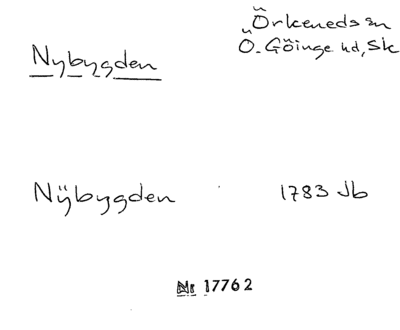 Örkeneds sn
Nybygden Ö. Göinge hd, Sk
Nÿbygden 1783 Jb
Nr 17762